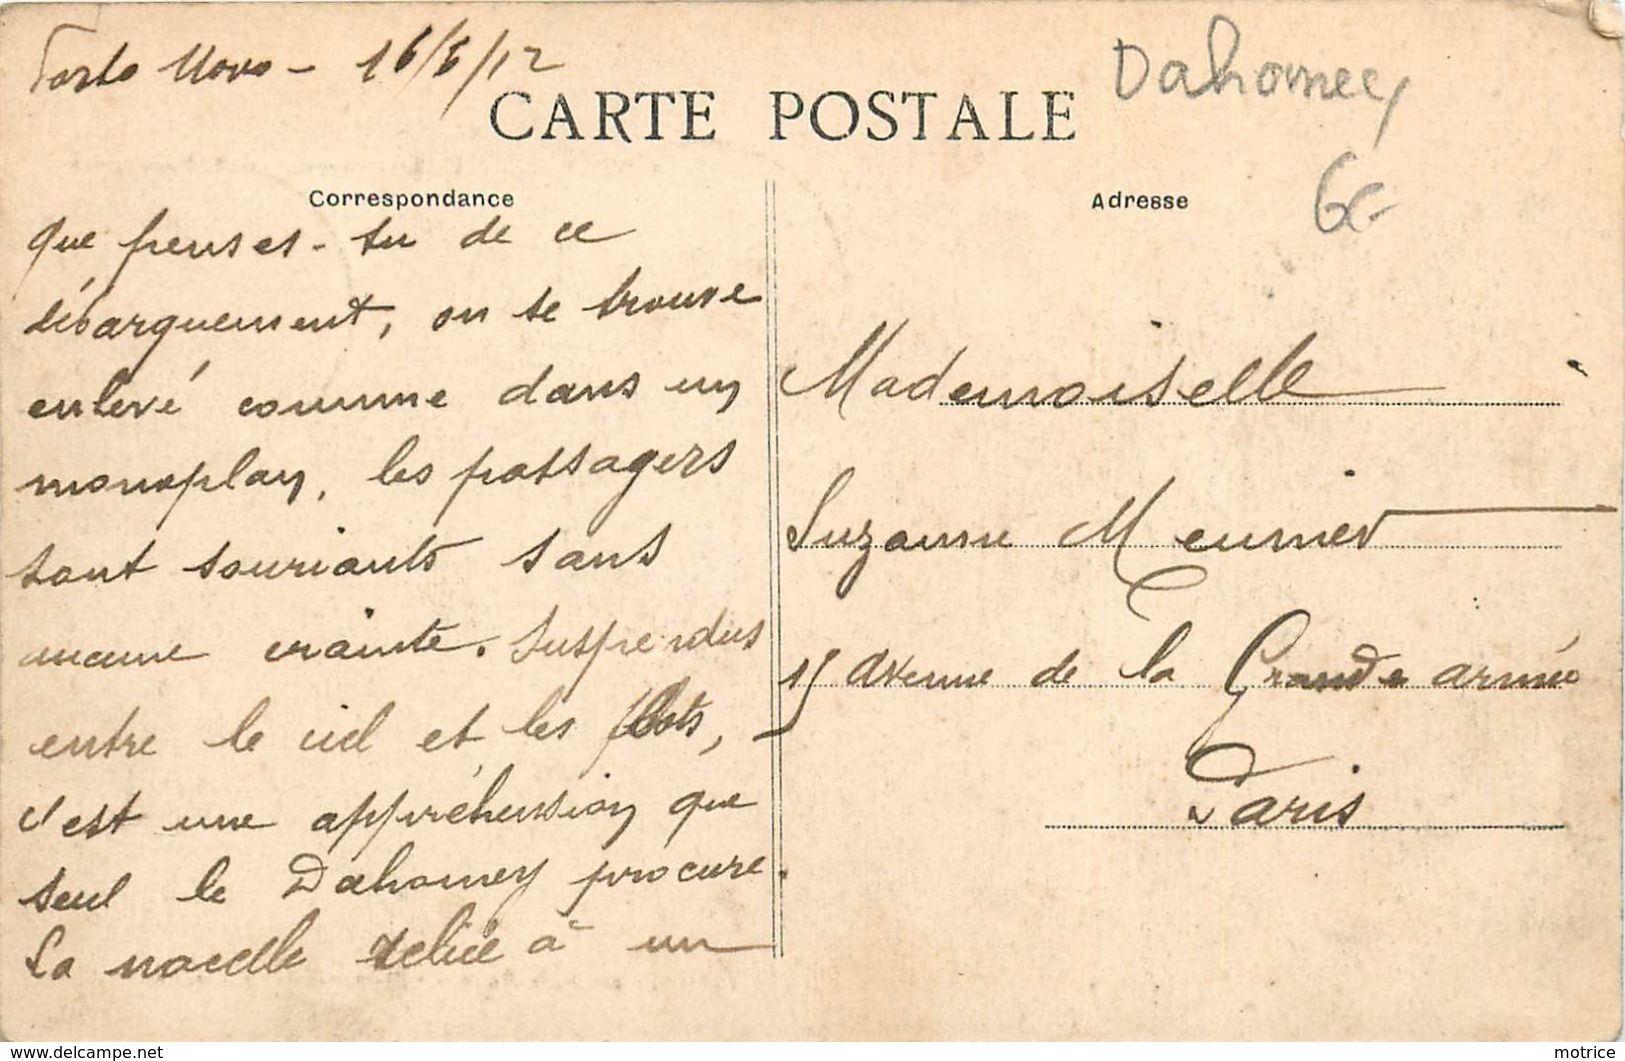 Porto Novo - 16/5/12
CARTE POSTALE
Dahomey
6€-
Correspondance
que penses-tu de ce
débarquement, on se trouve
enlevé comme dans un
monoplan, les passagers
sont souriants sans
aucune crainte. Suspendus
entre le ciel et les flots,
c'est une appréhension que
seul le Dahomey procure.
La nacelle reliée à un
Adresse
Mademoiselle
Suzanne Meunier
15 avenue de la Grande armée
Paris
motrice